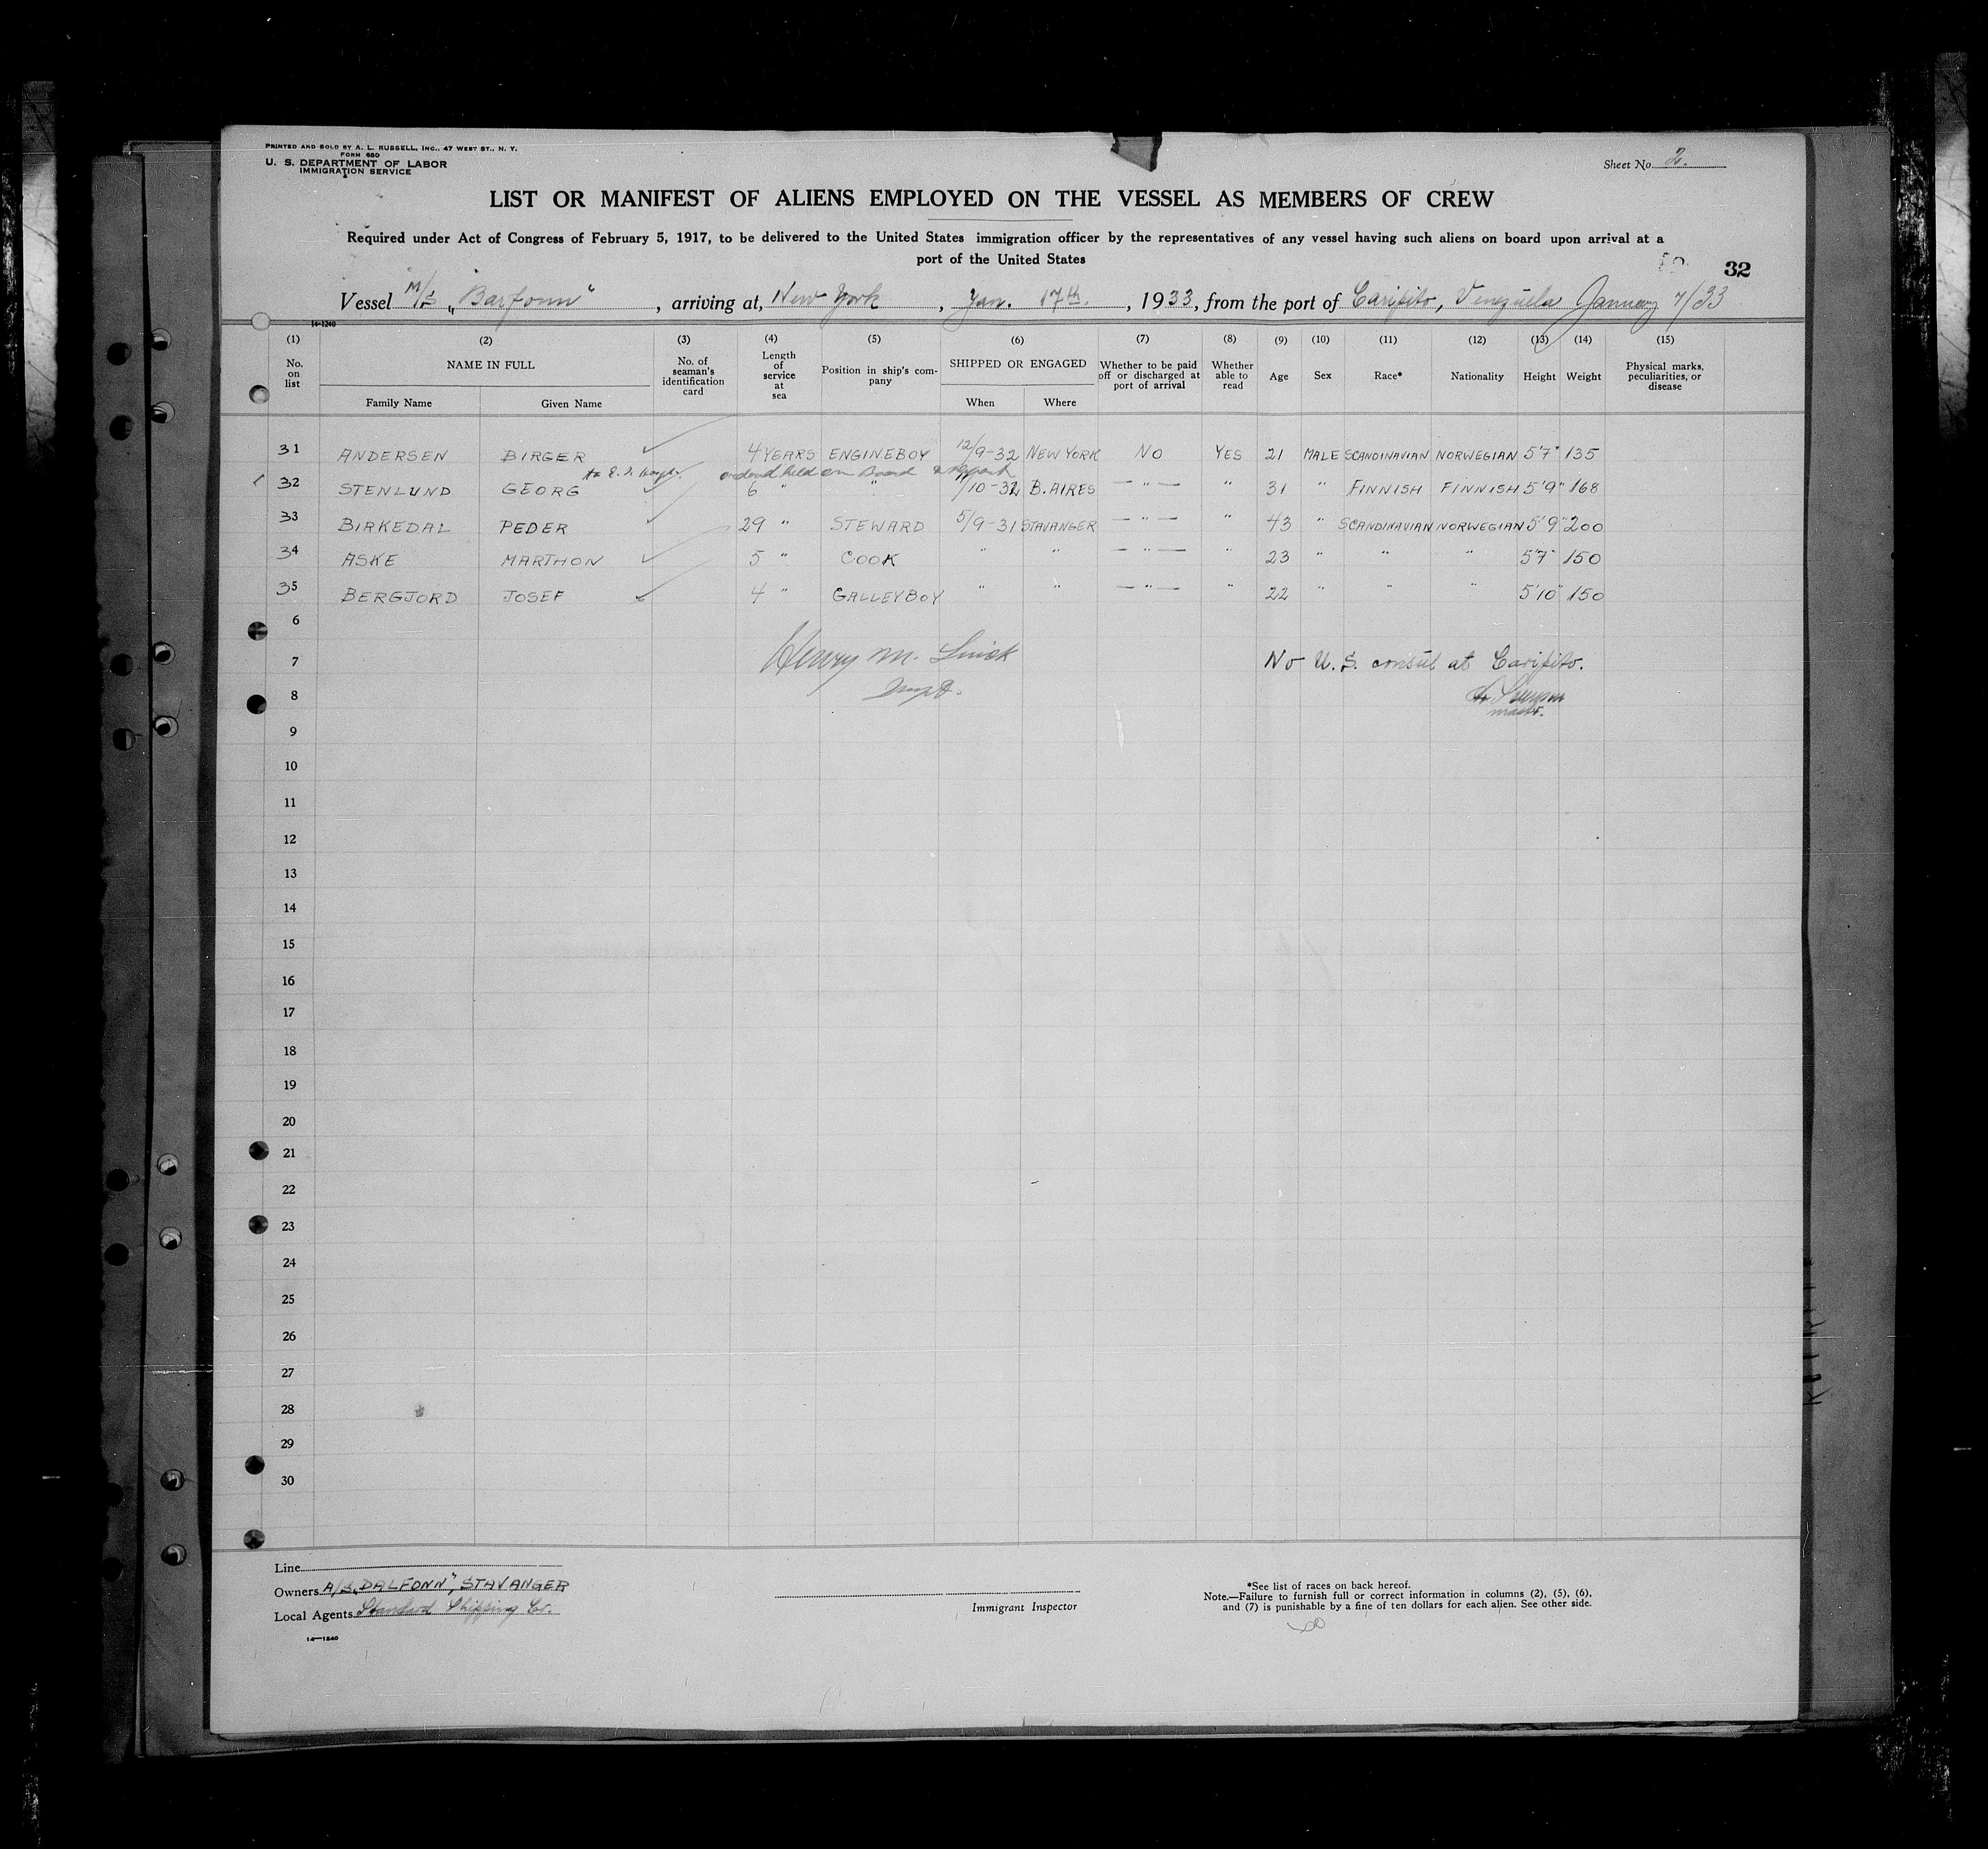 PRINTED AND SOLD BY A. L. RUSSELL, INC., 47 WEST ST., N. Y.
FORM 680
U. S. DEPARTMENT OF LABOR
IMMIGRATION SERVICE
Sheet No. 2.
LIST OR MANIFEST OF ALIENS EMPLOYED ON THE VESSEL AS MEMBERS OF CREW
Required under Act of Congress of February 5, 1917, to be delivered to the United States immigration officer by the representatives of any vessel having such aliens on board upon arrival at a
port of the United States
32
Vessel M/S „Barfonn“, arriving at, New York, Jan. 17th., 1933, from the port of Caripito, Venezuela January 7/33
14-1240
(1) (2) (3) (4) (5) (6) (7) (8) (9) (10) (11) (12) (13) (14) (15)
No. on list NAME IN FULL No. of seaman's identification card Length of service at sea Position in ship's company SHIPPED OR ENGAGED Whether to be paid off or discharged at port of arrival Whether able to read Age Sex Race* Nationality Height Weight Physical marks, peculiarities, or disease
Family Name Given Name When Where
31 ANDERSEN BIRGER 4 YEARS ENGINEBOY 12/9-32 NEW YORK NO YES 21 MALE SCANDINAVIAN NORWEGIAN 5'7" 135
ordered held on Board
32 STENLUND GEORG 6 " " 11/10-32 B. AIRES — " — " 31 " FINNISH FINNISH 5'9" 168
33 BIRKEDAL PEDER 29 " STEWARD 5/9-31 STAVANGER — " — " 43 " SCANDINAVIAN NORWEGIAN 5'9" 200
34 ASKE MARTHON 5 " COOK " " — " — " 23 " " " 5'7" 150
35 BERGJORD JOSEF 4 " GALLEYBOY " " — " — " 22 " " " 5'10" 150
6
7 Henry M. No U. S. consul at Caripito.
8
master.
9
10
11
12
13
14
15
16
17
18
19
20
21
22
23
24
25
26
27
28
29
30
Line
Owners A/S „DALFONN“, STAVANGER
Local Agents Standard Shipping Co.
14—1240
Immigrant Inspector
*See list of races on back hereof.
Note.—Failure to furnish full or correct information in columns (2), (5), (6),
and (7) is punishable by a fine of ten dollars for each alien. See other side.